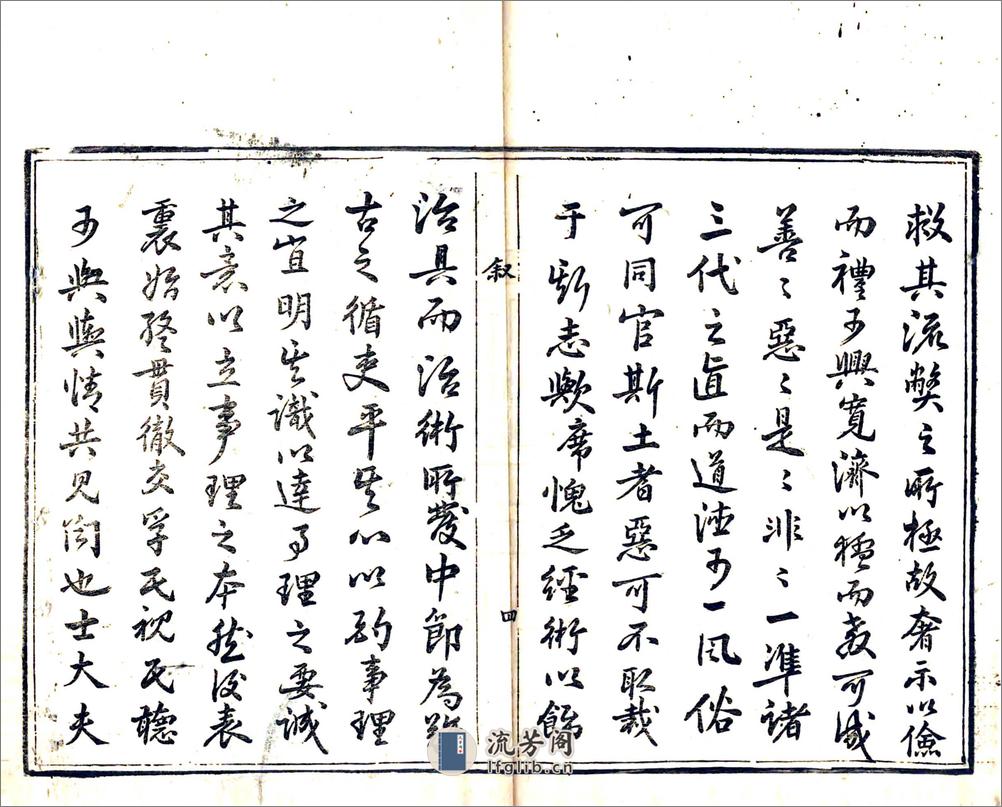 救其流弊之所極故奢示以儉
而禮可興寬濟以猛而教可成
善〻惡〻是〻非〻一準諸
三代之直而道德可一風俗
可同官斯土者惡可不取裁
于斯志歟席愧乏經術以飾
叙
四
治具而治術所發中節為難
古之循吏平其心以酌事理
之宜明其識以達事理之要誠
其意以立事理之本然後表
裏始終貫徹交孚民視民聽
可與輿情共見聞也士大夫
流芳阁
lfglib.cn